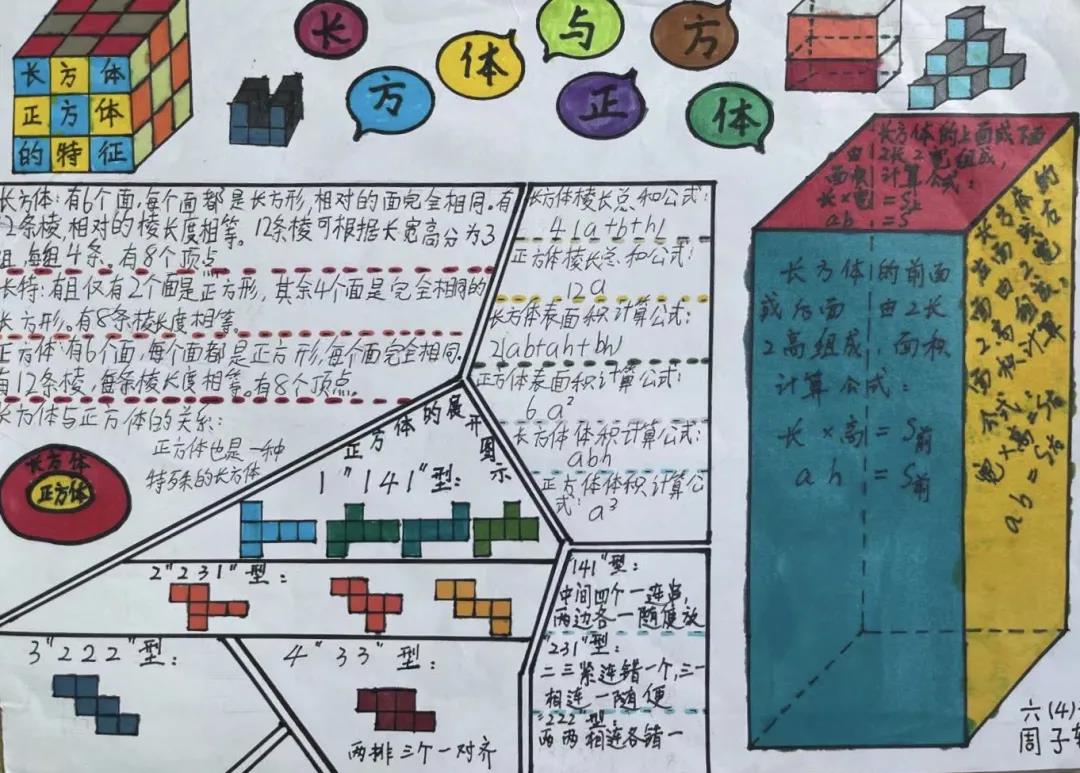 长方体
正方体
的特征
长方体与正方体
长方体:有6个面,每个面都是长方形,相对的面完全相同。有
12条棱,相对的棱长度相等。12条棱可根据长宽高分为3
组,每组4条。有8个顶点
长特:有且仅有2个面是正方形,其余4个面是完全相同的
长方形。有8条棱长度相等。
正方体:有6个面,每个面都是正方形,每个面完全相同。
有12条棱,每条棱长度相等。有8个顶点。
长方体与正方体的关系:
正方体也是一种
特殊的长方体
长方体
正方体
长方体棱长总和公式:
4(a+b+h)
正方体棱长总和公式:
12a
长方体表面积计算公式:
2(ab+ah+bh)
正方体表面积计算公式:
6a²
长方体体积计算公式:
abh
正方体体积计算公
式:a³
正方体的展开图示
1"141"型:
2"231"型:
3"222"型:
4"33"型:
两排三个一对齐
"141"型:
中间四个一连串,
两边各一随便放
"231"型:
二三紧连错一个,三一
相连一随便
"222"型:
两两相连各错一
长方体的上面或下面
由2长2宽组成,
面积计算公式:
长×宽=S上
ab=S
长方体的前面
或后面由2长
2高组成,面积
计算公式:
长×高=S前
ah=S前
长方体的
左面或右
面由2宽
2高组成。
面积计算
公式:
宽×高=S右
ab=S右
六(4)
周子